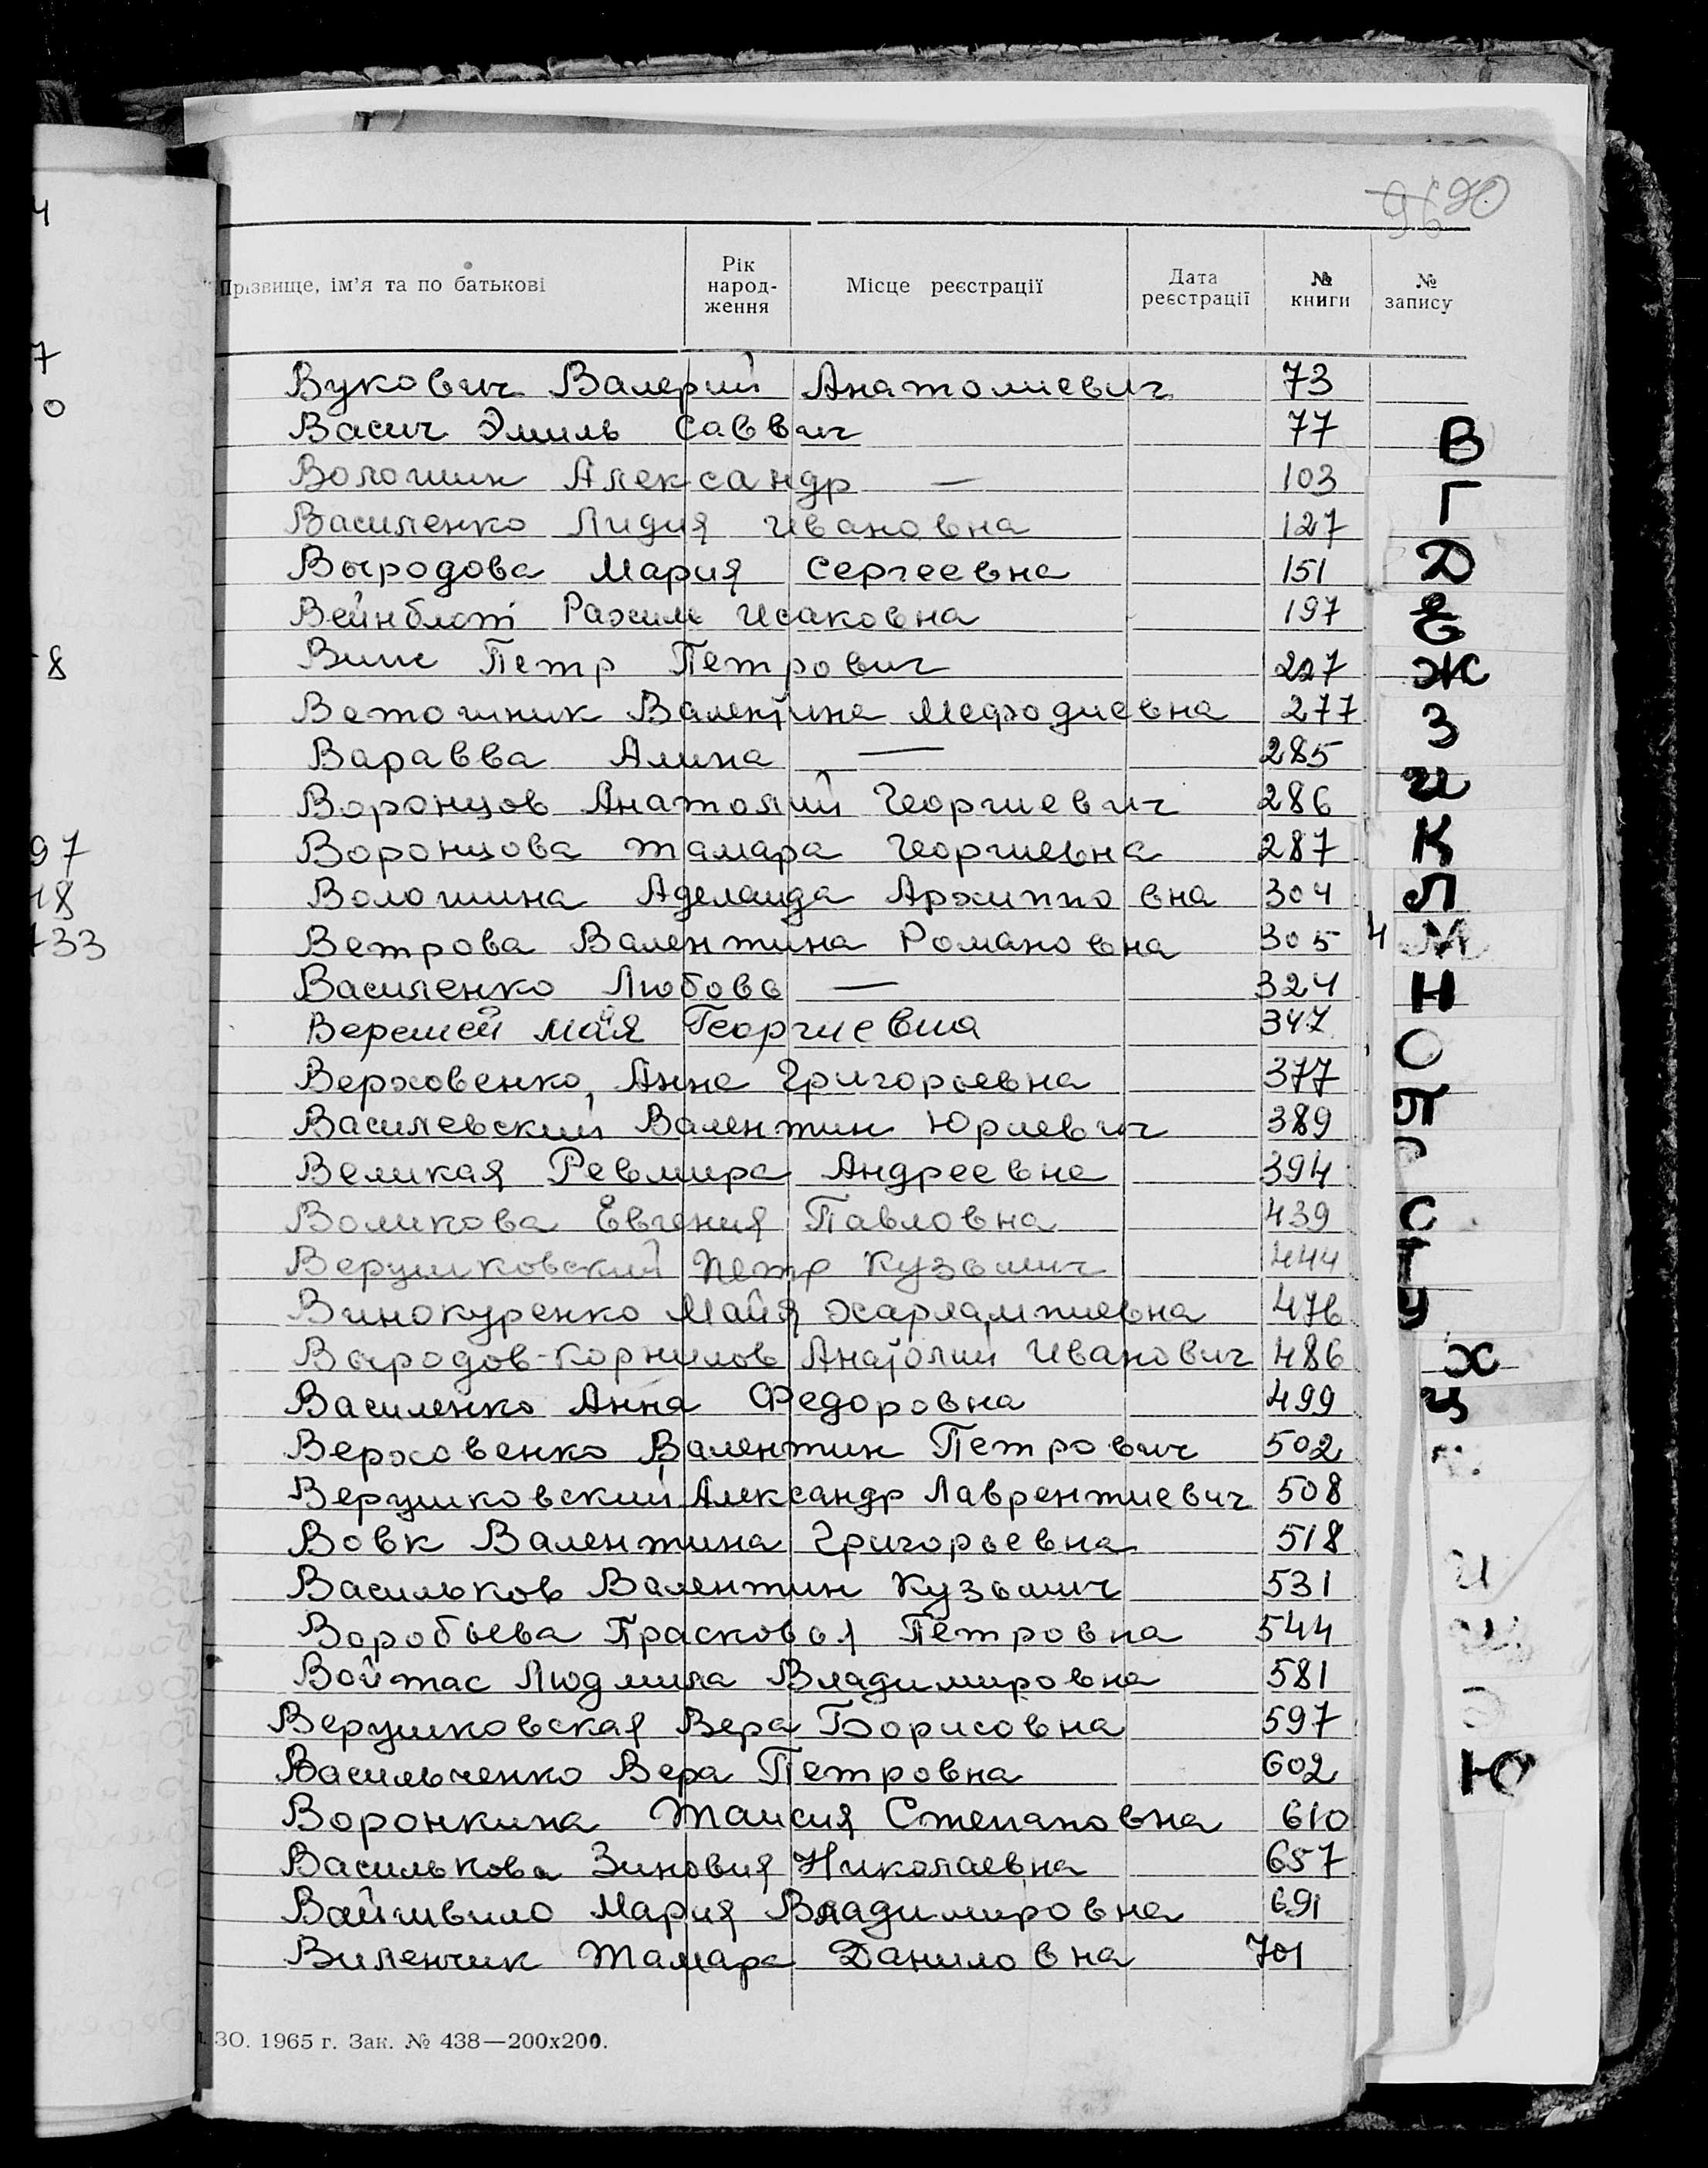 90
Прізвище, ім'я та по батькові Рік народ-ження Місце реєстрації Дата реєстрації № книги № запису
Вукович Валерий Анатолиевич 73
Васич Эмиль Саввич 77
Волошин Александр — 103
Василенко Лидия Ивановна 127
Выродова Мария Сергеевна 151
Вейнблат Рахиль Исаковна 197
Петр Петрович 227
Ветошник Валентина Мефодиевна 277
Варавва Алина — 285
Воронцов Анатолий Георгиевич 286
Воронцова Тамара Георгиевна 287
Волошина Аделаида Архипповна 304
Ветрова Валентина Романовна 305
Василенко Любовь — 324
Веремей Майя Георгиевна 347
Верховенко Анна Григорьевна 377
Василевский Валентин Юриевич 389
Великая Ревмира Андреевна 394
Воликова Евгения Павловна 439
Верушковский Петр Кузьмич 444
Винокуренко Майя Харлампиевна 476
Выродов-Корнилов Анатолий Иванович 486
Василенко Анна Федоровна 499
Верховенко Валентин Петрович 502
Верушковский Александр Лаврентиевич 508
Вовк Валентина Григорьевна 518
Васильков Валентин Кузьмич 531
Воробьева Прасковья Петровна 544
Войтас Людмила Владимировна 581
Верушковская Вера Борисовна 597
Васильченко Вера Петровна 602
Воронкина Таисия Степановна 610
Василькова Зиновия Николаевна 657
Вайшвило Мария Владимировна 691
Виленчик Тамара Даниловна 701
ЗО. 1965 г. Зак. № 438—200х200.
4
7
0
8
97
18
733
В
Г
Д
Е
Ж
З
И
К
Л
М
Н
О
П
Р
С
Т
У
Х
Ц
Ю